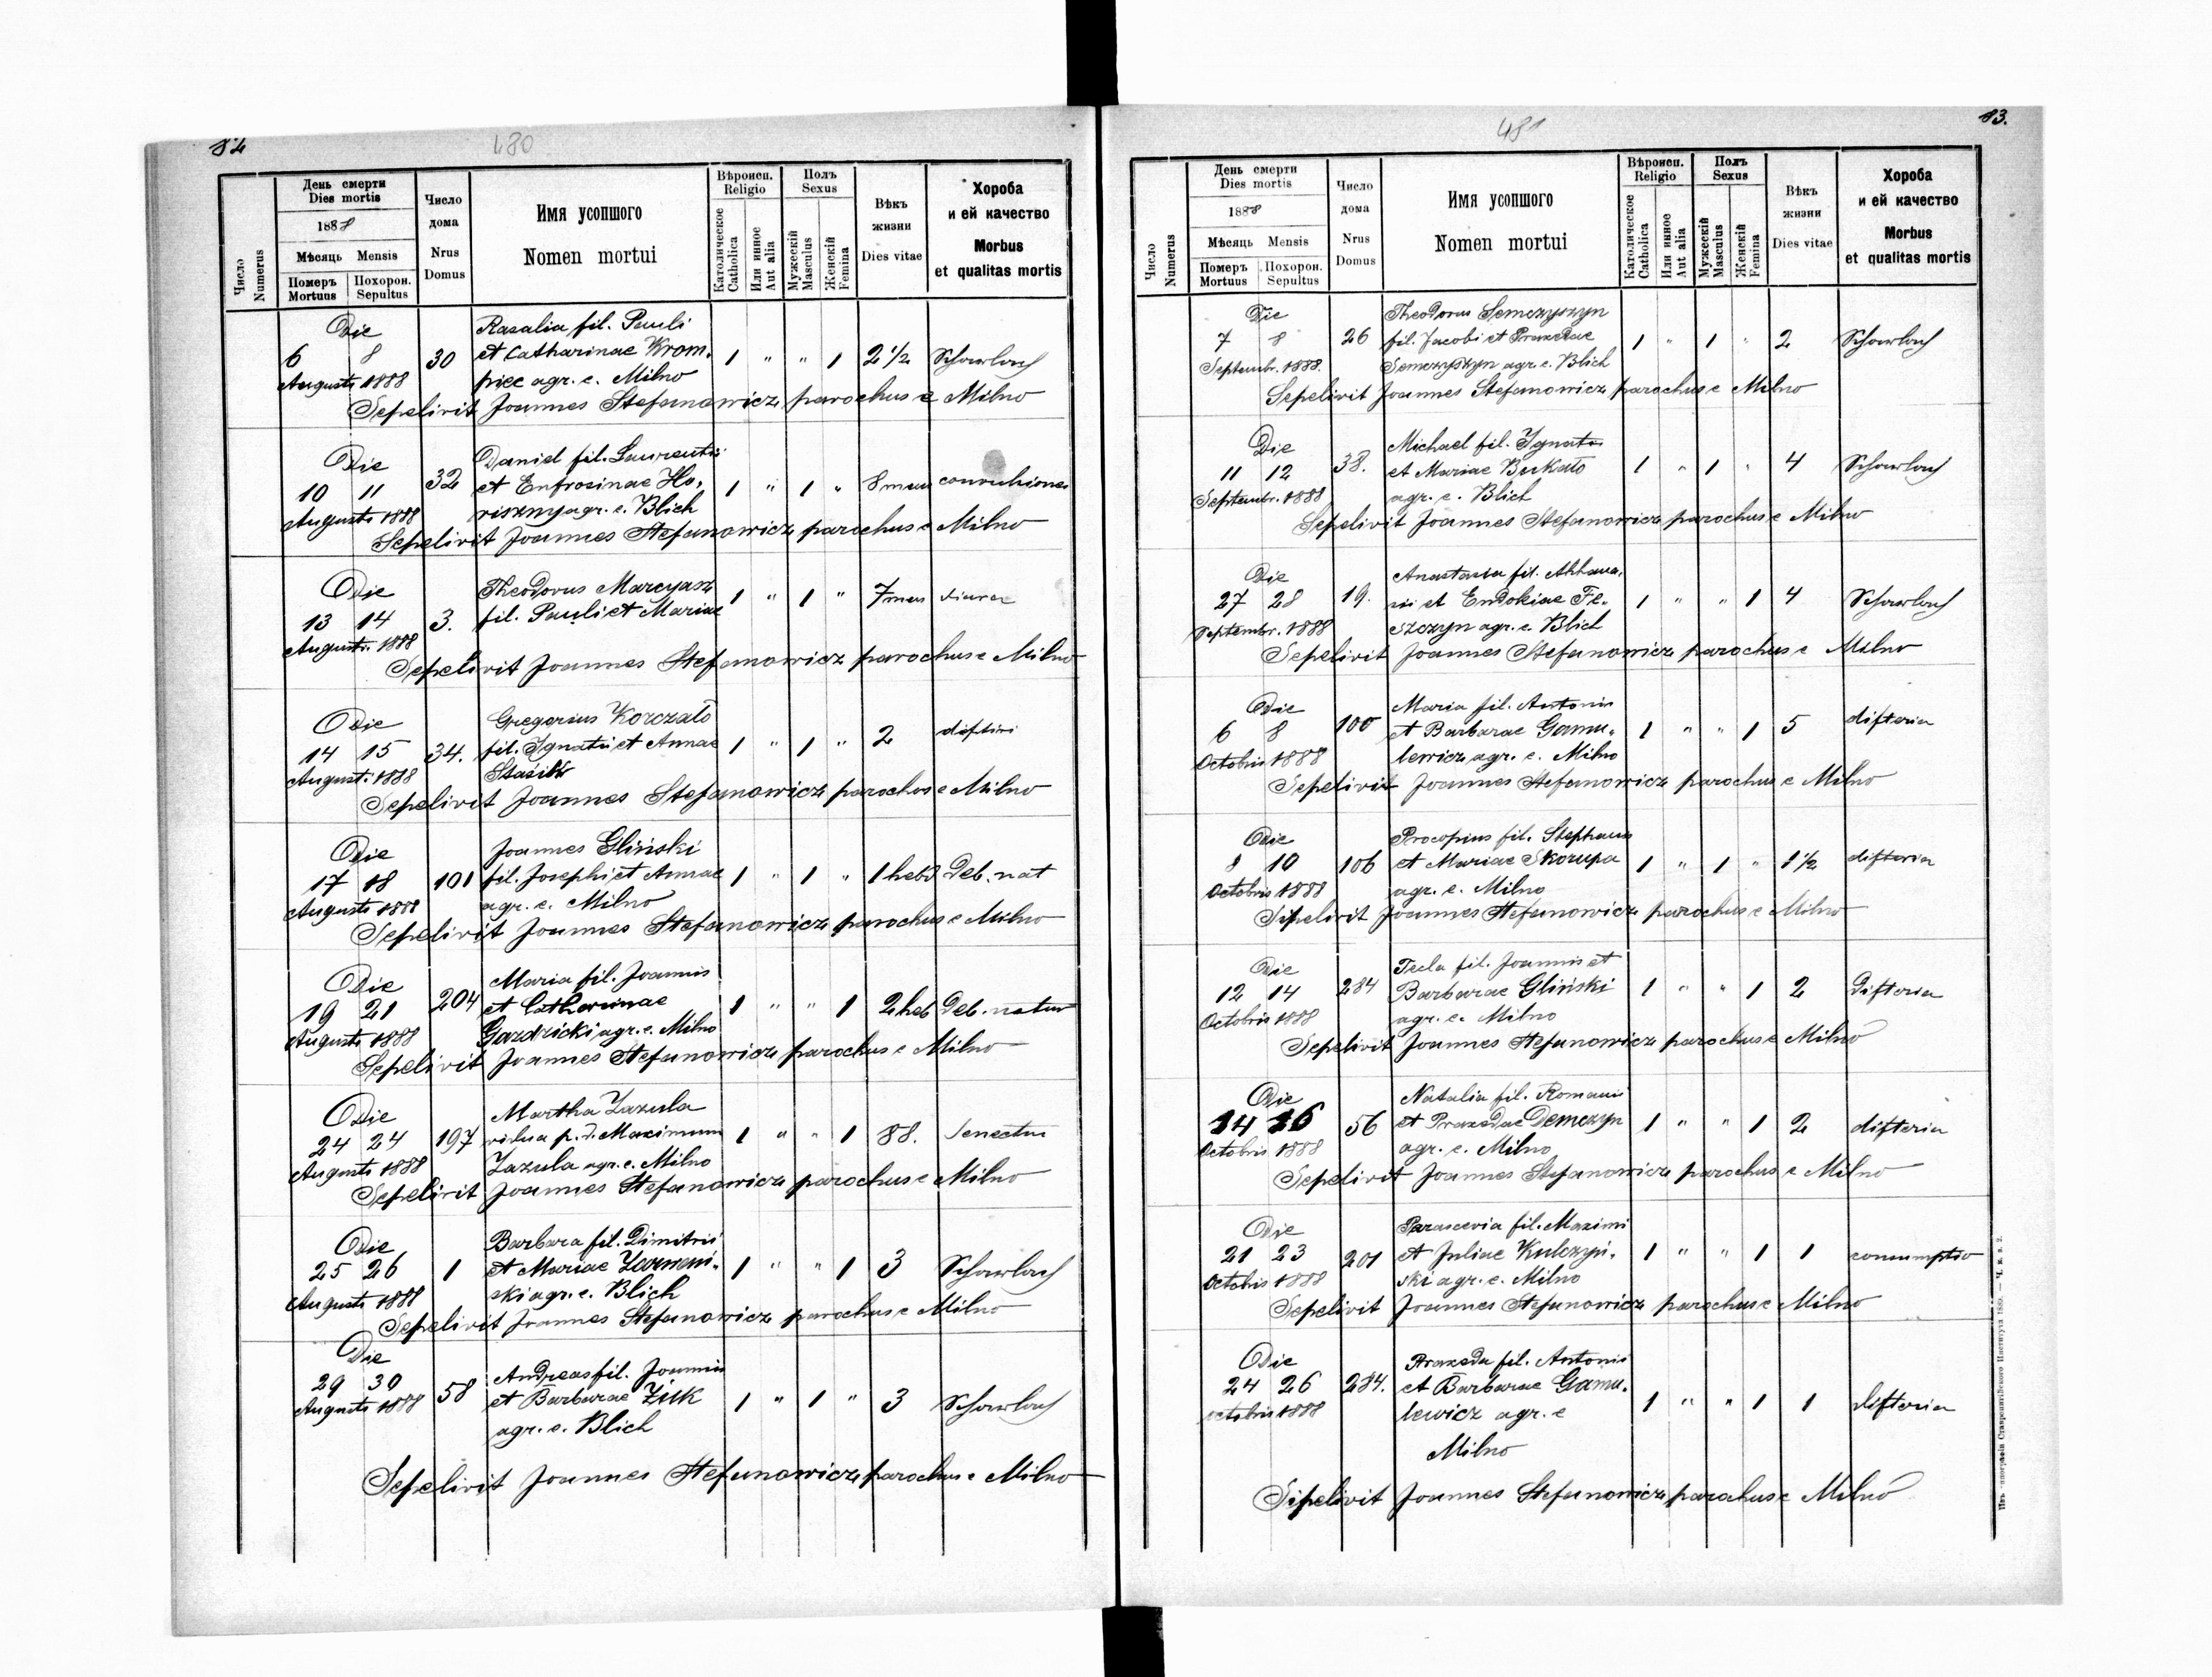 82
480
Число Numerus
День смерти
Dies mortis
1888
Мѣсяць Mensis
Померъ Mortuus
Похорон. Sepultus
Число дома
Nrus Domus
Имя усопшого
Nomen mortui
Вѣроисп.
Religio
Католическое Catholica
Или инное Aut alia
Полъ
Sexus
Мужескій Masculus
Женскій Femina
Вѣкъ жизни
Dies vitae
Хороба
и ей качество
Morbus
et qualitas mortis
Die
Rasalia fil. Pauli
6 8 30 et Catharinae Krom, 1 " " 1 2 1/2 Scharlach
Augusti 1888 piec agr. e. Milno
Sepelivit Joannes Stefanowicz parochus e Milno
Die
Daniel fil. Laurentii
10 11 32 et Eufrosinae Ho, 1 " 1 " 8 mens convulsiones
Augusti 1888 riszny agr. e. Blich
Sepelivit Joannes Stefanowicz parochus e Milno
Die
Theodorus Marcyasz
13 14 3. fil. Pauli et Mariae 1 " 1 " 7 men
Augusti 1888
Sepelivit Joannes Stefanowicz parochus e Milno
Die
Gregorius Korczało
14 15 34. fil. Ignatii et Annae 1 " 1 " 2
Augusti 1888
Sepelivit Joannes Stefanowicz parochus e Milno
Die
Joannes Gliński
17 18 101 fil. Josephi et Annae 1 " 1 " 1 hebd Deb. nat
Augusti 1888 agr. e. Milno
Sepelivit Joannes Stefanowicz parochus e Milno
Die
Maria fil. Joannis
19 21 204 et Catharinae 1 " " 1 2 heb Deb. natur
Augusti 1888 Gazdzicki agr. e. Milno
Sepelivit Joannes Stefanowicz parochus e Milno
Die
Martha Zazula
24 24 197 vidua p. d. Maximum 1 " " 1 88. Senectus
Augusti 1888 Zazula agr. e. Milno
Sepelivit Joannes Stefanowicz parochus e Milno
Die
Barbara fil. Dimitrii
25 26 1 et Mariae 1 " " 1 3 Scharlach
Augusti 1888 ski agr. e. Blich
Sepelivit Joannes Stefanowicz parochus e Milno
Die
Andreas fil. Joannis
29 30 58 et Barbarae Żuk 1 " 1 " 3 Scharlach
Augusti 1888 agr. e. Blich
Sepelivit Joannes Stefanowicz parochus e Milno
481
83.
Число Numerus
День смерти
Dies mortis
1888
Мѣсяць Mensis
Померъ Mortuus
Похорон. Sepultus
Число дома
Nrus Domus
Имя усопшого
Nomen mortui
Вѣроисп.
Religio
Католическое Catholica
Или инное Aut alia
Полъ
Sexus
Мужескій Masculus
Женскій Femina
Вѣкъ жизни
Dies vitae
Хороба
и ей качество
Morbus
et qualitas mortis
Die
Theodorus Semczyszyn
7 8 26 fil. Jacobi et Praxedae 1 " 1 " 2 Scharlach
Septembr. 1888. Semczyszyn agr. e. Blich
Sepelivit Joannes Stefanowicz parochus e Milno
Die
Michael fil. Ignatii
11 12 38. et Mariae 1 " 1 " 4 Scharlach
Septembr. 1888 agr. e. Blich
Sepelivit Joannes Stefanowicz parochus e Milno
Die
Anastasia fil. Athana,
27 28 19. sii et Eudokiae Fe, 1 " " 1 4 Scharlach
Septembr. 1888 szczyn agr. e. Blich
Sepelivit Joannes Stefanowicz parochus e Milno
Die
Maria fil. Antonii
6 8 100 et Barbarae Gamu, 1 " " 1 5 difteria
Octobris 1888 lewicz agr. e. Milno
Sepelivit Joannes Stefanowicz parochus e Milno
Die
Procopius fil. Stephani
8 10 106 et Mariae Skorupa 1 " 1 " 1 1/2 difteria
Octobris 1888 agr. e. Milno
Sepelivit Joannes Stefanowicz parochus e Milno
Die
Tecla fil. Joannis et
12 14 284 Barbarae Gliński 1 " " 1 2 Difteria
Octobris 1888 agr. e. Milno
Sepelivit Joannes Stefanowicz parochus e Milno
Die
Natalia fil. Romani
14 16 56 et Praxedae Demczyn 1 " " 1 2 difteria
Octobris 1888 agr. e. Milno
Sepelivit Joannes Stefanowicz parochus e Milno
Die
Parascevia fil. Maximi
21 23 201 et Juliae Kulczyń, 1 " " 1 1 consumptio
Octobris 1888 ski agr. e. Milno
Sepelivit Joannes Stefanowicz parochus e Milno
Die
Praxeda fil. Antonii
24 26 284. et Barbarae Gamu, 1 " " 1 1 difteria
octobris 1888 lewicz agr. e
Milno
Sipelivit Joannes Stefanowicz parochus e Milno